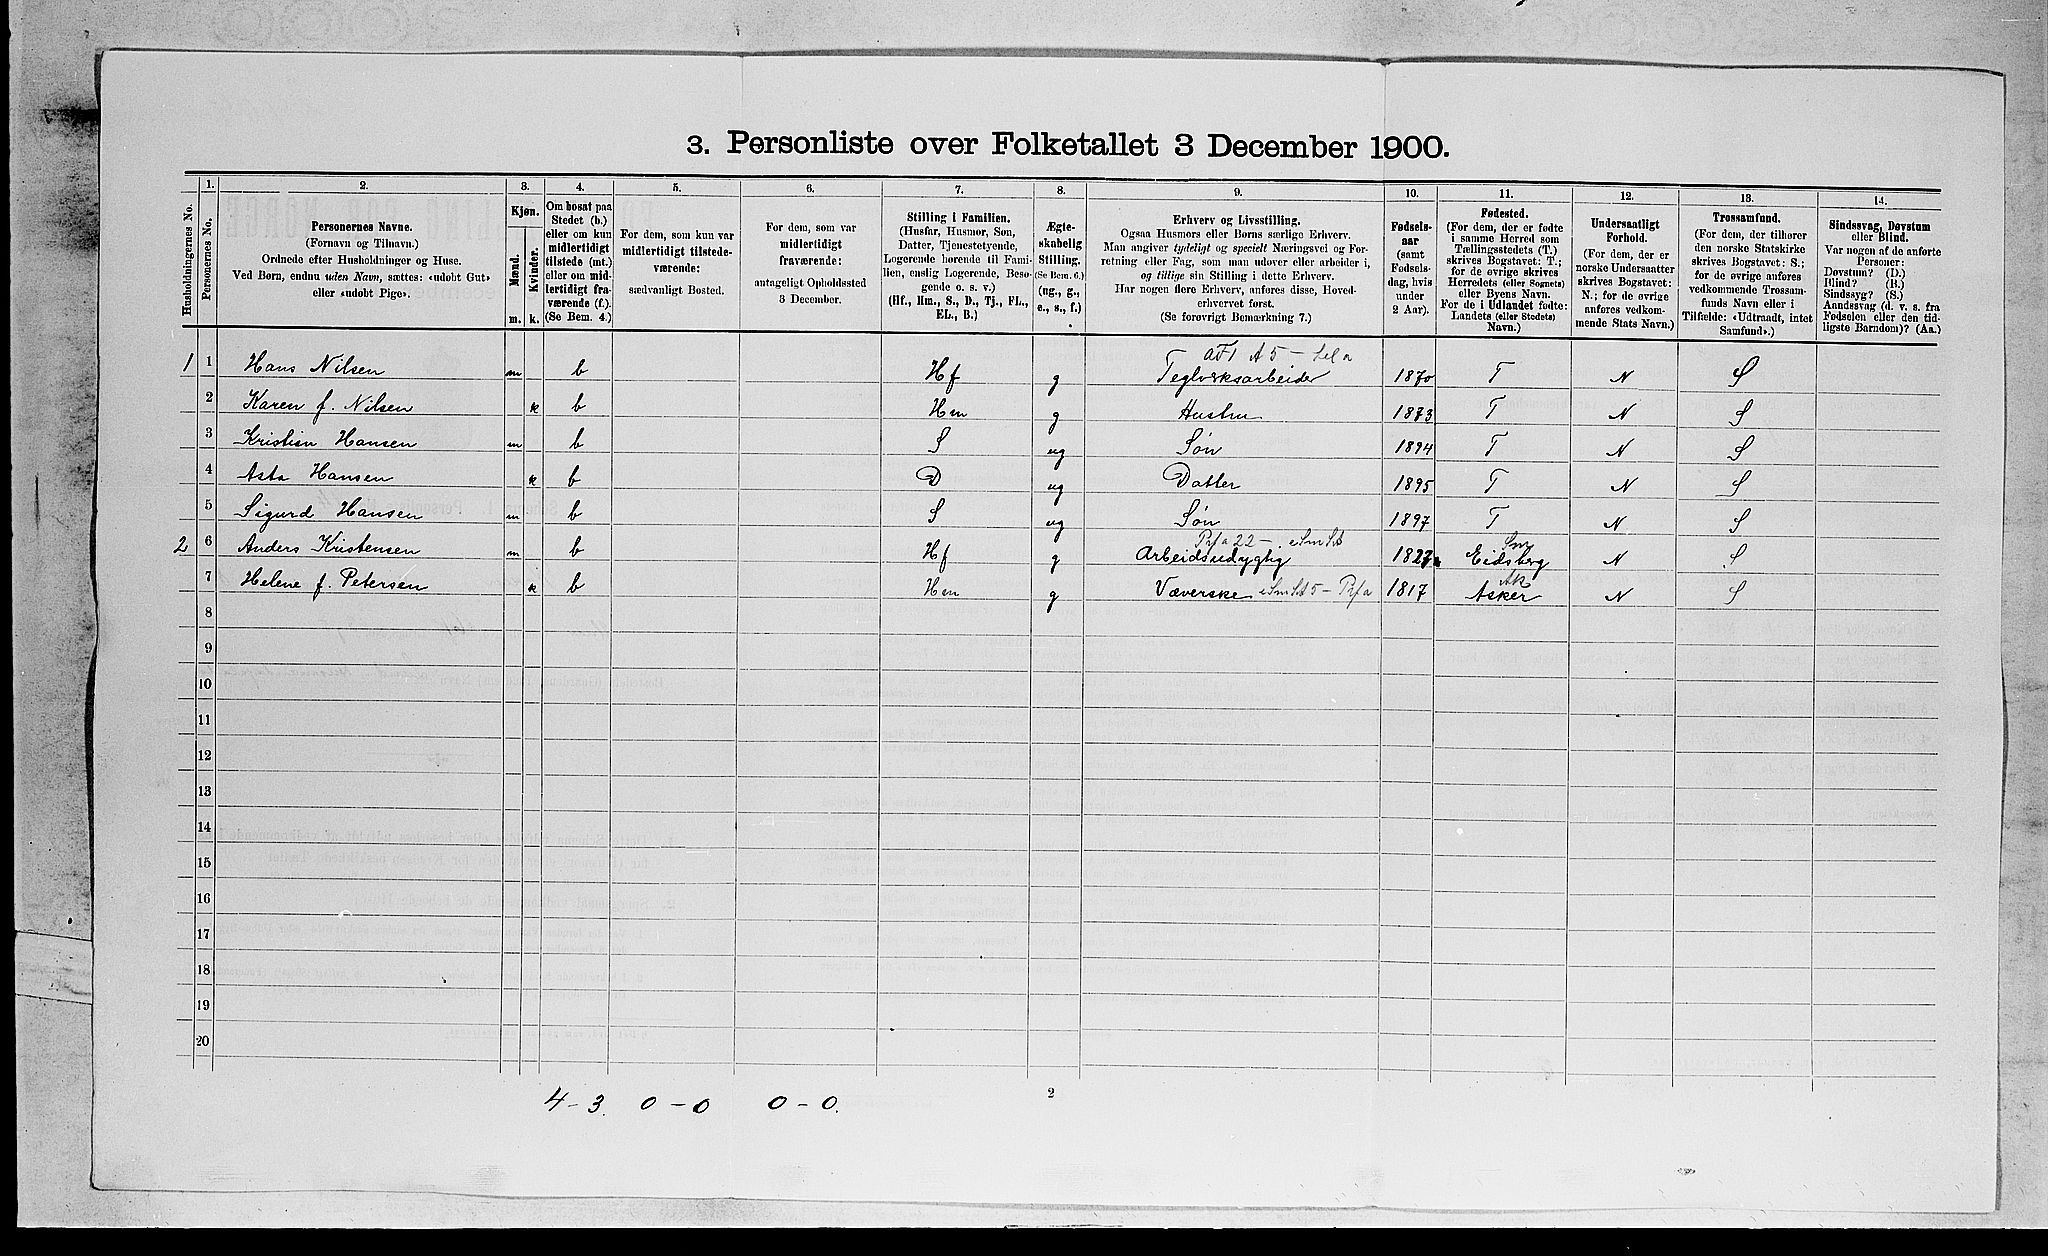 3. Personliste over Folketallet 3 December 1900.
Husholdningernes No.
1.
Personernes No.
2.
Personernes Navne.
(Fornavn og Tilnavn.)
Ordnede efter Husholdninger og Huse.
Ved Børn, endnu uden Navn, sættes: «udøbt Gut»
eller «udøbt Pige».
3.
Kjøn.
Mænd.
Kvinder.
m. k.
4.
Om bosat paa
Stedet (b.)
eller om kun
midlertidigt
tilstede (mt.)
eller om mid-
lertidigt fra-
værende (f.).
(Se Bem. 4.)
5.
For dem, som kun var
midlertidigt tilstede-
værende:
sædvanligt Bosted.
6.
For dem, som var
midlertidigt
fraværende:
antageligt Opholdssted
3 December.
7.
Stilling i Familien.
(Husfar, Husmor, Søn,
Datter, Tjenestetyende,
Logerende hørende til Fami-
lien, enslig Logerende, Besø-
gende o. s. v.)
(Hf., Hm., S., D., Tj., FL.,
EL., B.)
8.
Ægte-
skabelig
Stilling.
(Se Bem. 6.)
(ug., g.,
e., s., f.)
9.
Erhverv og Livsstilling.
Ogsaa Husmors eller Børns særlige Erhverv.
Man angiver tydeligt og specielt Næringsvei og For-
retning eller Fag, som man udøver eller arbeider i,
og tillige sin Stilling i dette Erhverv.
Har nogen flere Erhverv, anføres disse, Hoved-
erhvervet først.
(Se forøvrigt Bemærkning 7.)
10.
Fødsels-
aar
(samt
Fødsels-
dag, hvis
under
2 Aar).
11.
Fødested.
(For dem, der er fødte
i samme Herred som
Tællingsstedets (T.)
skrives Bogstavet: T.;
for de øvrige skrives
Herredets (eller Sognets)
eller Byens Navn.
For de i Udlandet fødte:
Landets (eller Stedets)
Navn.)
12.
Undersaatligt
Forhold.
(For dem, der er
norske Undersaatter
skrives Bogstavet:
N.; for de øvrige
anføres vedkom-
mende Stats Navn.)
13.
Trossamfund.
(For dem, der tilhører
den norske Statskirke
skrives Bogstavet: S.;
for de øvrige anføres
vedkommende Trossam-
funds Navn eller i
Tilfælde: «Udtraadt, intet
Samfund».)
14.
Sindssvag, Døvstum
eller Blind.
Var nogen af de anførte
Personer:
Døvstum? (D.)
Blind? (B.)
Sindssyg? (S.)
Aandssvag (d. v. s. fra
Fødselen eller den tid-
ligste Barndom)? (Aa.)
1 1 Hans Nilsen m b Hf g Teglverksarbeider 1870 T N S
2 Karen f. Nilsen k b Hm g Hustru 1873 T N S
3 Kristian Hansen m b S ug Søn 1894 T N S
4 Asta Hansen k b D ug Datter 1895 T N S
5 Sigurd Hansen m b S ug Søn 1897 T N S
2 6 Anders Kristensen m b Hf g Arbeidsudygtig 1827 Eidsberg N S
7 Helene f. Petersen k b Hm g Væverske 1817 Asker N S
8
9
10
11
12
13
14
15
16
17
18
19
20
4-3. 0-0 0-0.
2